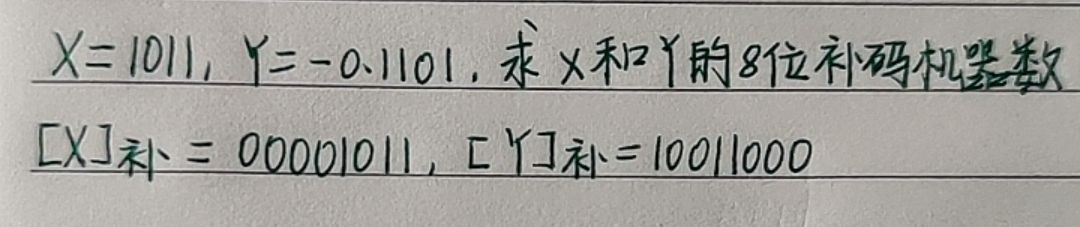 X=1011, Y=-0.1101, 求X和Y的8位补码机器数
[X]补=00001011, [Y]补=10011000